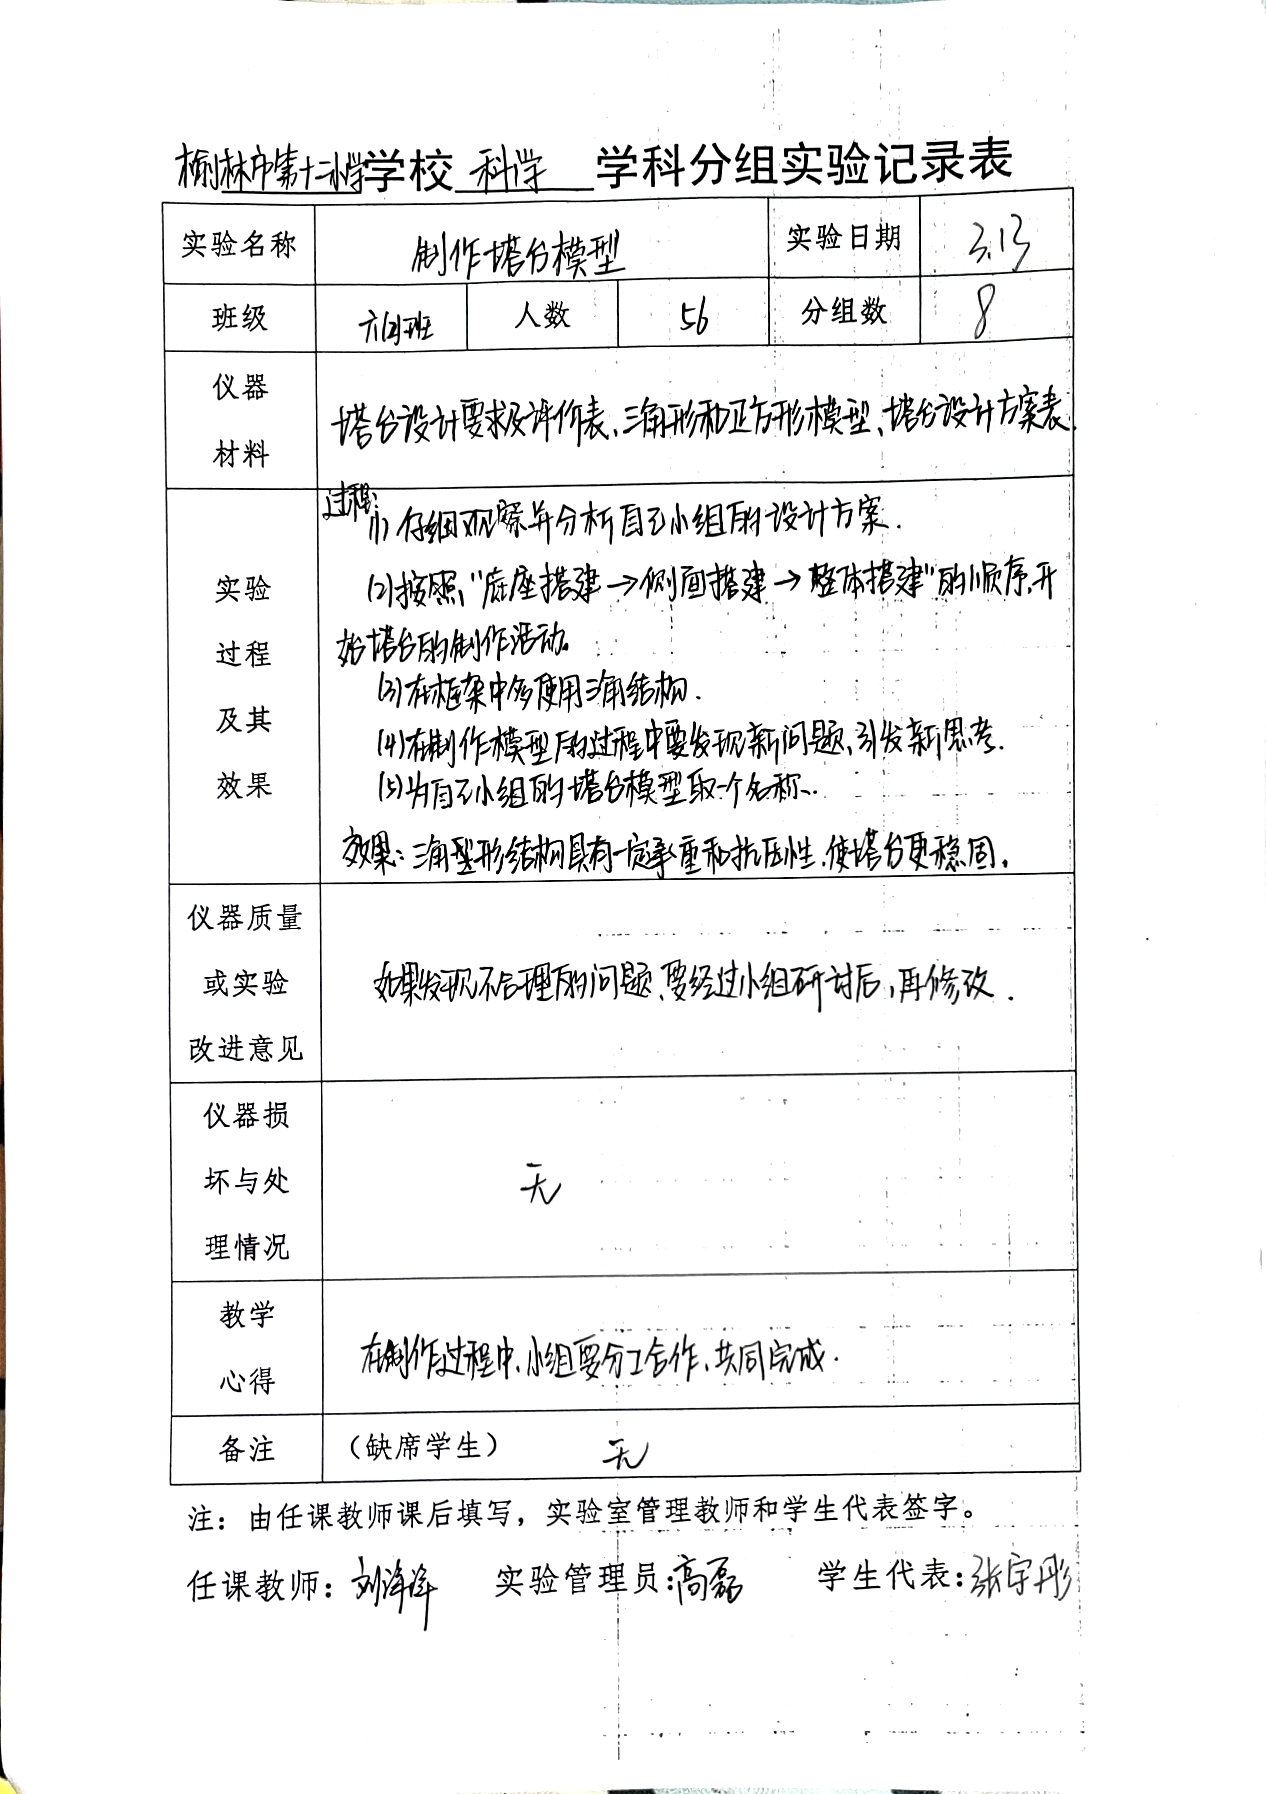 榆林市第十二小学学校 科学 学科分组实验记录表
实验名称 制作塔台模型 实验日期 3.13
班级 六(2)班 人数 56 分组数 8
仪器
材料
塔台设计要求及评价表、三角形和正方形模型、塔台设计方案表.
实验
过程
及其
效果
过程:
(1)仔细观察并分析自己小组的设计方案.
(2)按照"底座搭建→侧面搭建→整体搭建"的顺序,开
始塔台的制作活动。
(3)在框架中多使用三角结构.
(4)在制作模型的过程中要发现新问题,引发新思考.
(5)为自己小组的塔台模型取一个名称.
效果:三角型形结构具有一定承重和抗压性,使塔台更稳固.
仪器质量
或实验
改进意见
如果发现不合理的问题,要经过小组研讨后,再修改.
仪器损
坏与处
理情况
无
教学
心得
在制作过程中,小组要分工合作,共同完成.
备注 (缺席学生) 无
注:由任课教师课后填写,实验室管理教师和学生代表签字。
任课教师: 刘 实验管理员:高磊 学生代表:张宇彤